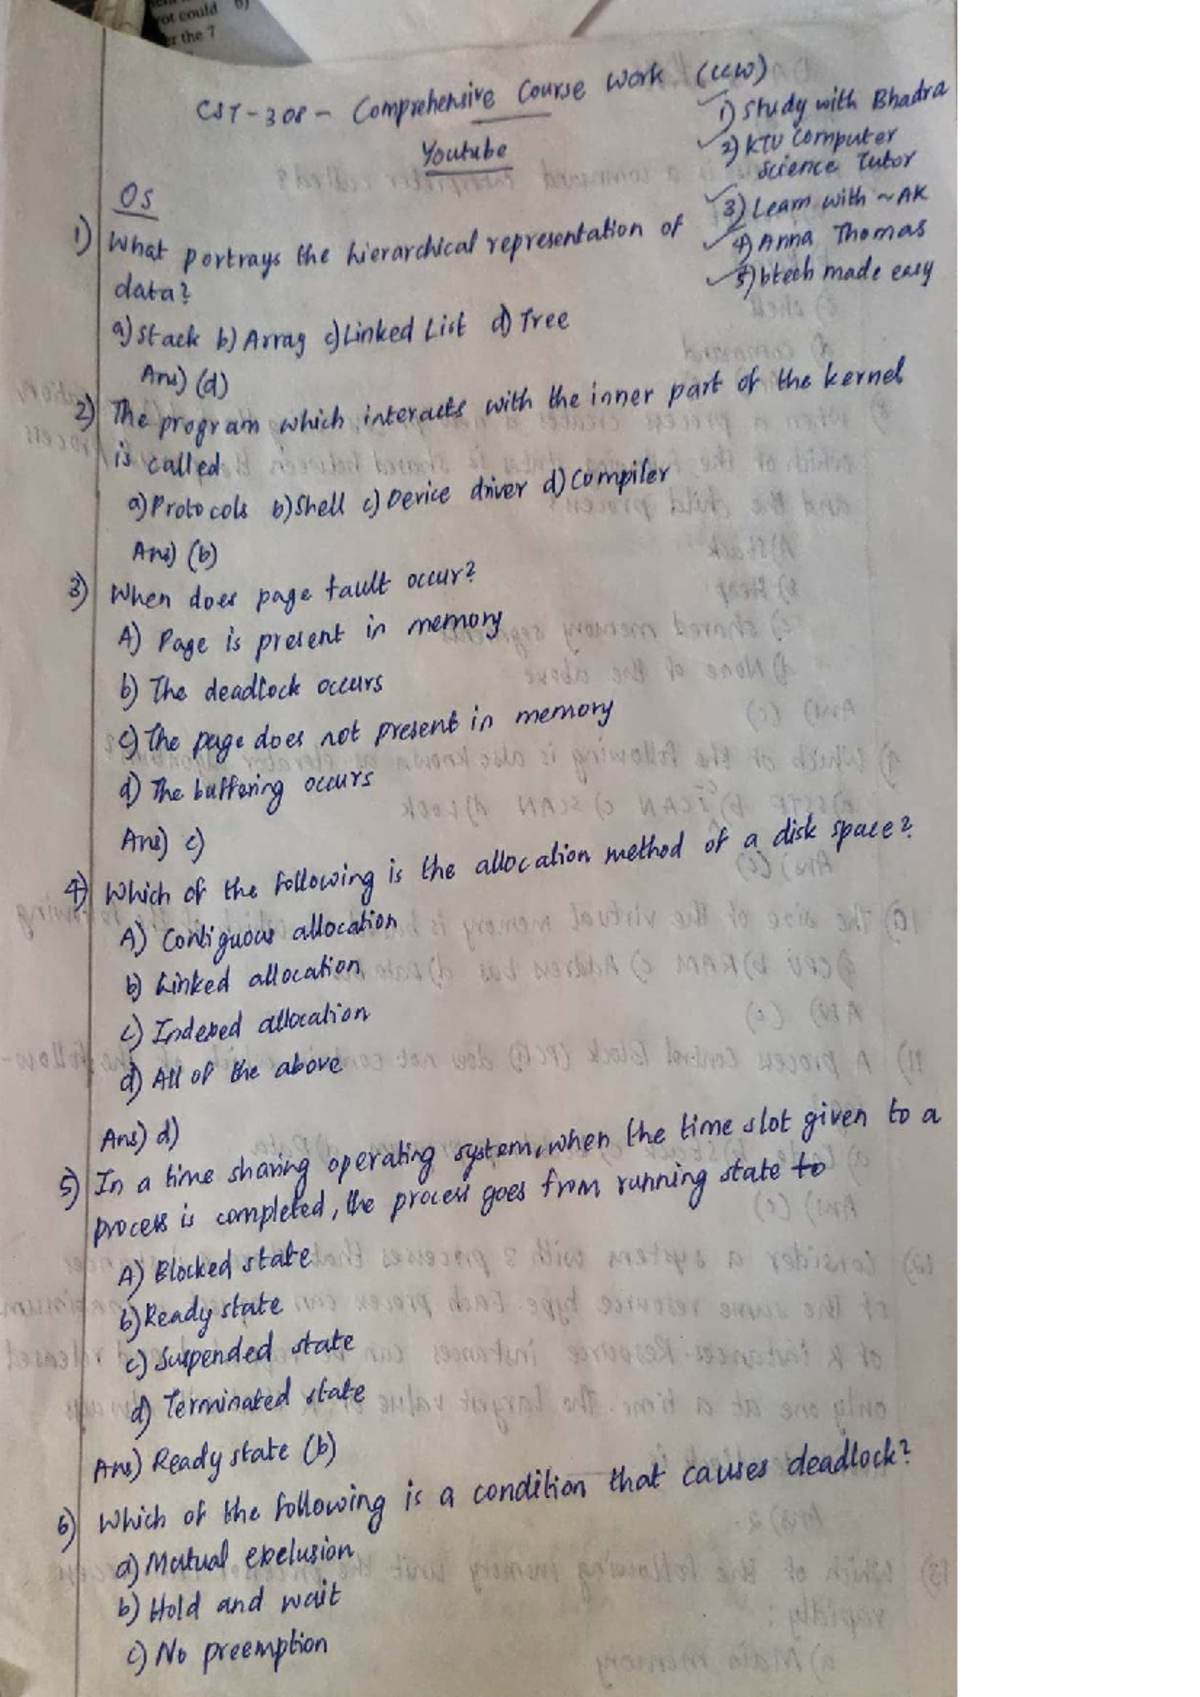 rot could 6)
er the 7
CST-308 - Comprehensive Course Work (CCW)
Youtube
1) Study with Bhadra
2) KTU Computer
Science Tutor
3) Learn with ~AK
4) Anna Thomas
5) btech made easy
OS
1) What portrays the hierarchical representation of
data?
a) Stack b) Array c) Linked List d) Tree
Ans) (d)
2) The program which interacts with the inner part of the kernel
is called
a) Protocols b) Shell c) Device driver d) Compiler
Ans) (b)
3) When does page fault occur?
A) Page is present in memory
b) The deadlock occurs
c) The page does not present in memory
d) The buffering occurs
Ans) c)
4) Which of the following is the allocation method of a disk space?
A) Contiguous allocation
b) Linked allocation
c) Indexed allocation
d) All of the above
Ans) d)
5) In a time sharing operating system, when the time slot given to a
process is completed, the process goes from running state to
A) Blocked state
b) Ready state
c) Suspended state
d) Terminated state
Ans) Ready state (b)
6) Which of the following is a condition that causes deadlock?
a) Mutual exclusion
b) Hold and wait
c) No preemption